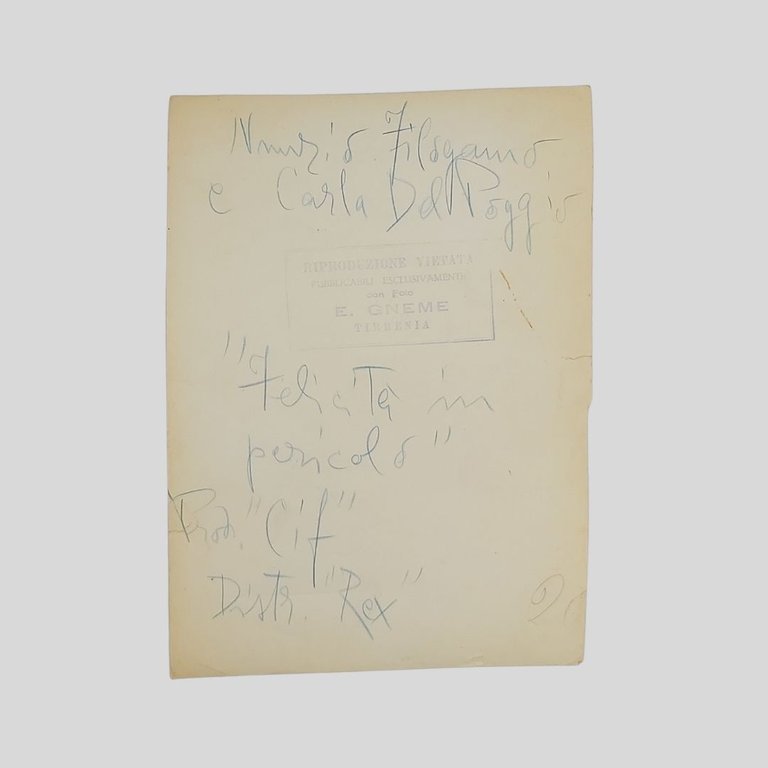 Nunzio Filogamo
e Carla Del Poggio
RIPRODUZIONE VIETATA
PUBBLICABILI ESCLUSIVAMENTE
con Foto
E. GNEME
TIRRENIA
"Felicità in
pericolo"
Prod. "Cif"
Distr. "Rex"